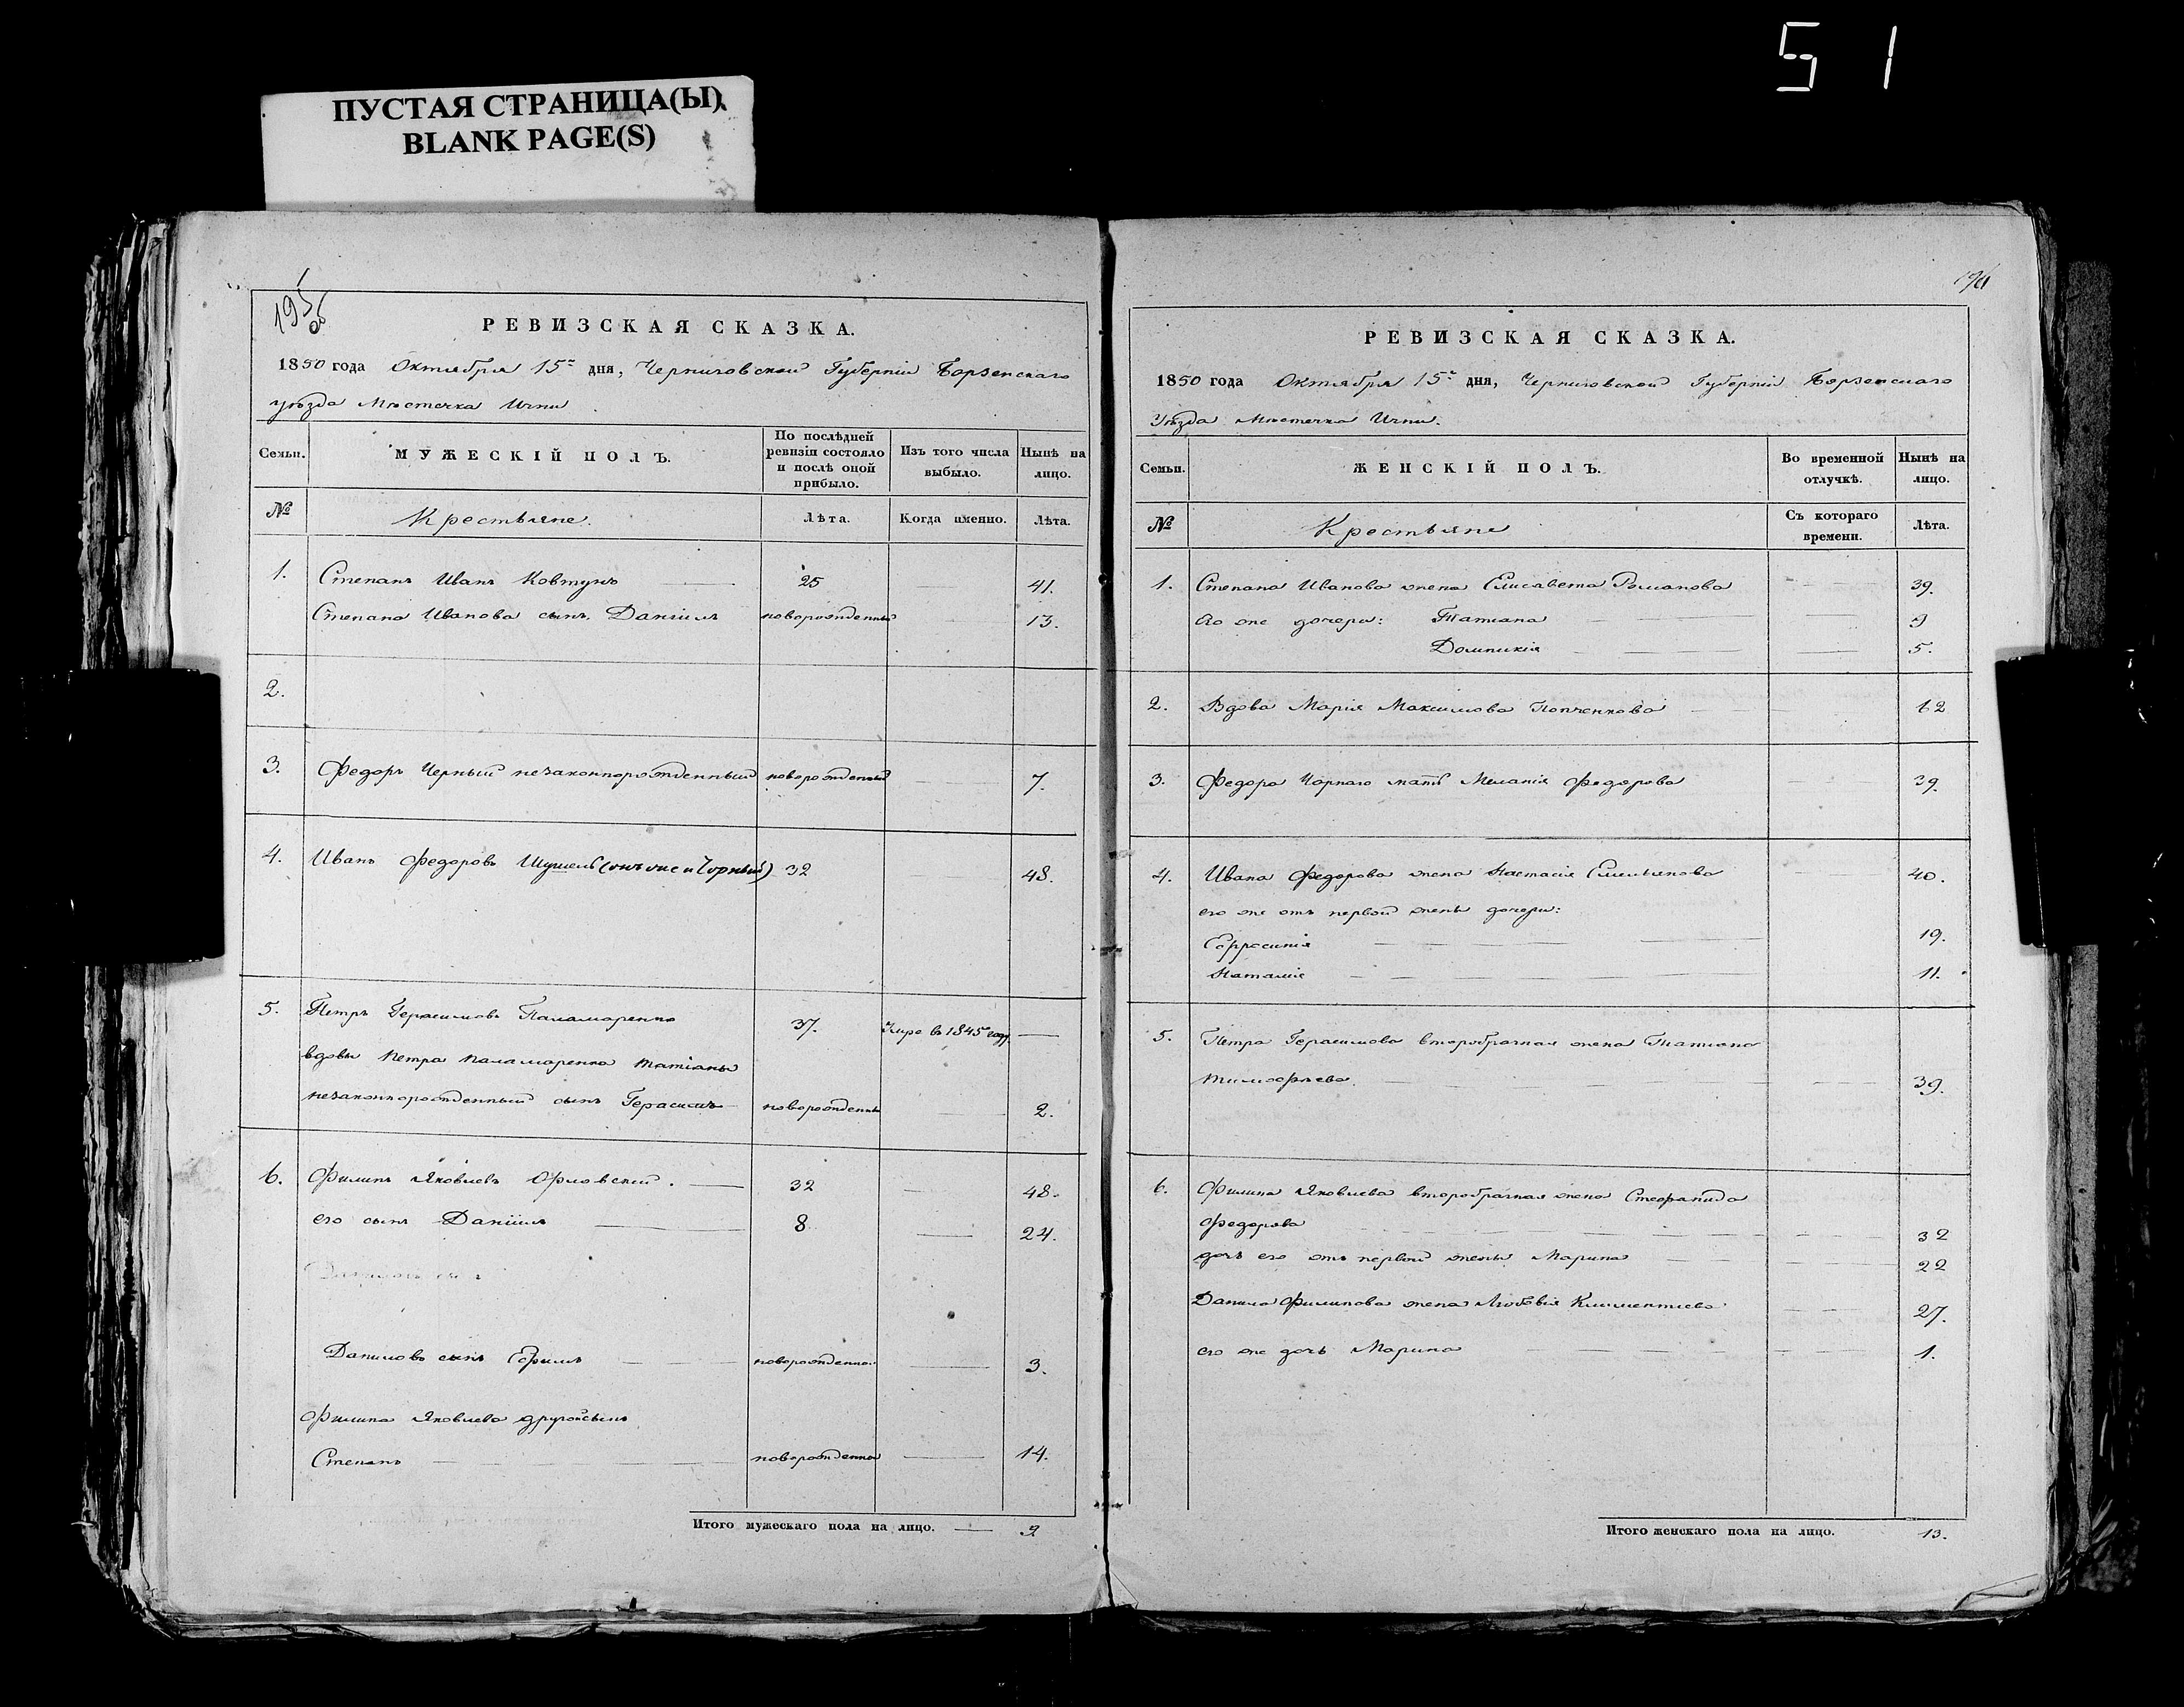 51
ПУСТАЯ СТРАНИЦА(Ы)
BLANK PAGE(S)
195
об
РЕВИЗСКАЯ СКАЗКА.
1850 года Октября 15го дня, Черниговской Губерніи Борзенскаго
уѣзда Мѣстечка Ични
Семьи. МУЖЕСКІЙ ПОЛЪ. По послѣдней ревизіи состояло и послѣ оной прибыло. Изъ того числа выбыло. Нынѣ на лицо.
№ Крестьяне. Лѣта. Когда именно. Лѣта.
1. Степанъ Иванъ Ковтунъ 25 41.
Степана Иванова сынъ Даніилъ новорожденный 13.
2.
3. Федоръ Черный незаконнорожденный новорожденный 7.
4. Иванъ Федоровъ (онъ же и Чорный) 32 48.
5. Петръ Герасимовъ Паламаренко 37. Умре въ 1845 году
вдовы Петра Паламаренка Татіаны
незаконнорожденный сынъ Герасимъ новорожденны 2.
6. Филипъ Яковлевъ Орловскій. 32 48.
его сынъ Даніилъ 8 24.
Даниловъ сынъ Ефимъ новорожденно 3.
Филипа Яковлева другой сынъ
Степанъ новорожденно 14.
Итого мужескаго пола на лицо. 9
196
РЕВИЗСКАЯ СКАЗКА.
1850 года Октября 15го дня, Черниговской Губерніи Борзенскаго
Уѣзда Мѣстечка Ични.
Семьи. ЖЕНСКІЙ ПОЛЪ. Во временной отлучкѣ. Нынѣ на лицо.
№ Крестьяне Съ котораго времени. Лѣта.
1. Степана Иванова жена Елисавета Романова 39.
Его же дочери: Татіана 9
Домникія 5.
2. Вдова Марія Максимова Попченкова 62
3. Федора Чорнаго мать Меланія Федорова 39.
4. Ивана Федорова жена Настасія Емельянова 40.
его же отъ первой жены дочери:
Ефросинія 19.
Наталія 11.
5. Петра Герасимова второбрачная жена Татіана
Тимофѣева 39.
6. Филипа Яковлева второбрачная жена Стефанида
Федорова 32
дочь его отъ первой жены Марина 22
Данила Филипова жена Любовія Климентіева 27.
его же дочь Марина 1.
Итого женскаго пола на лицо. 13.